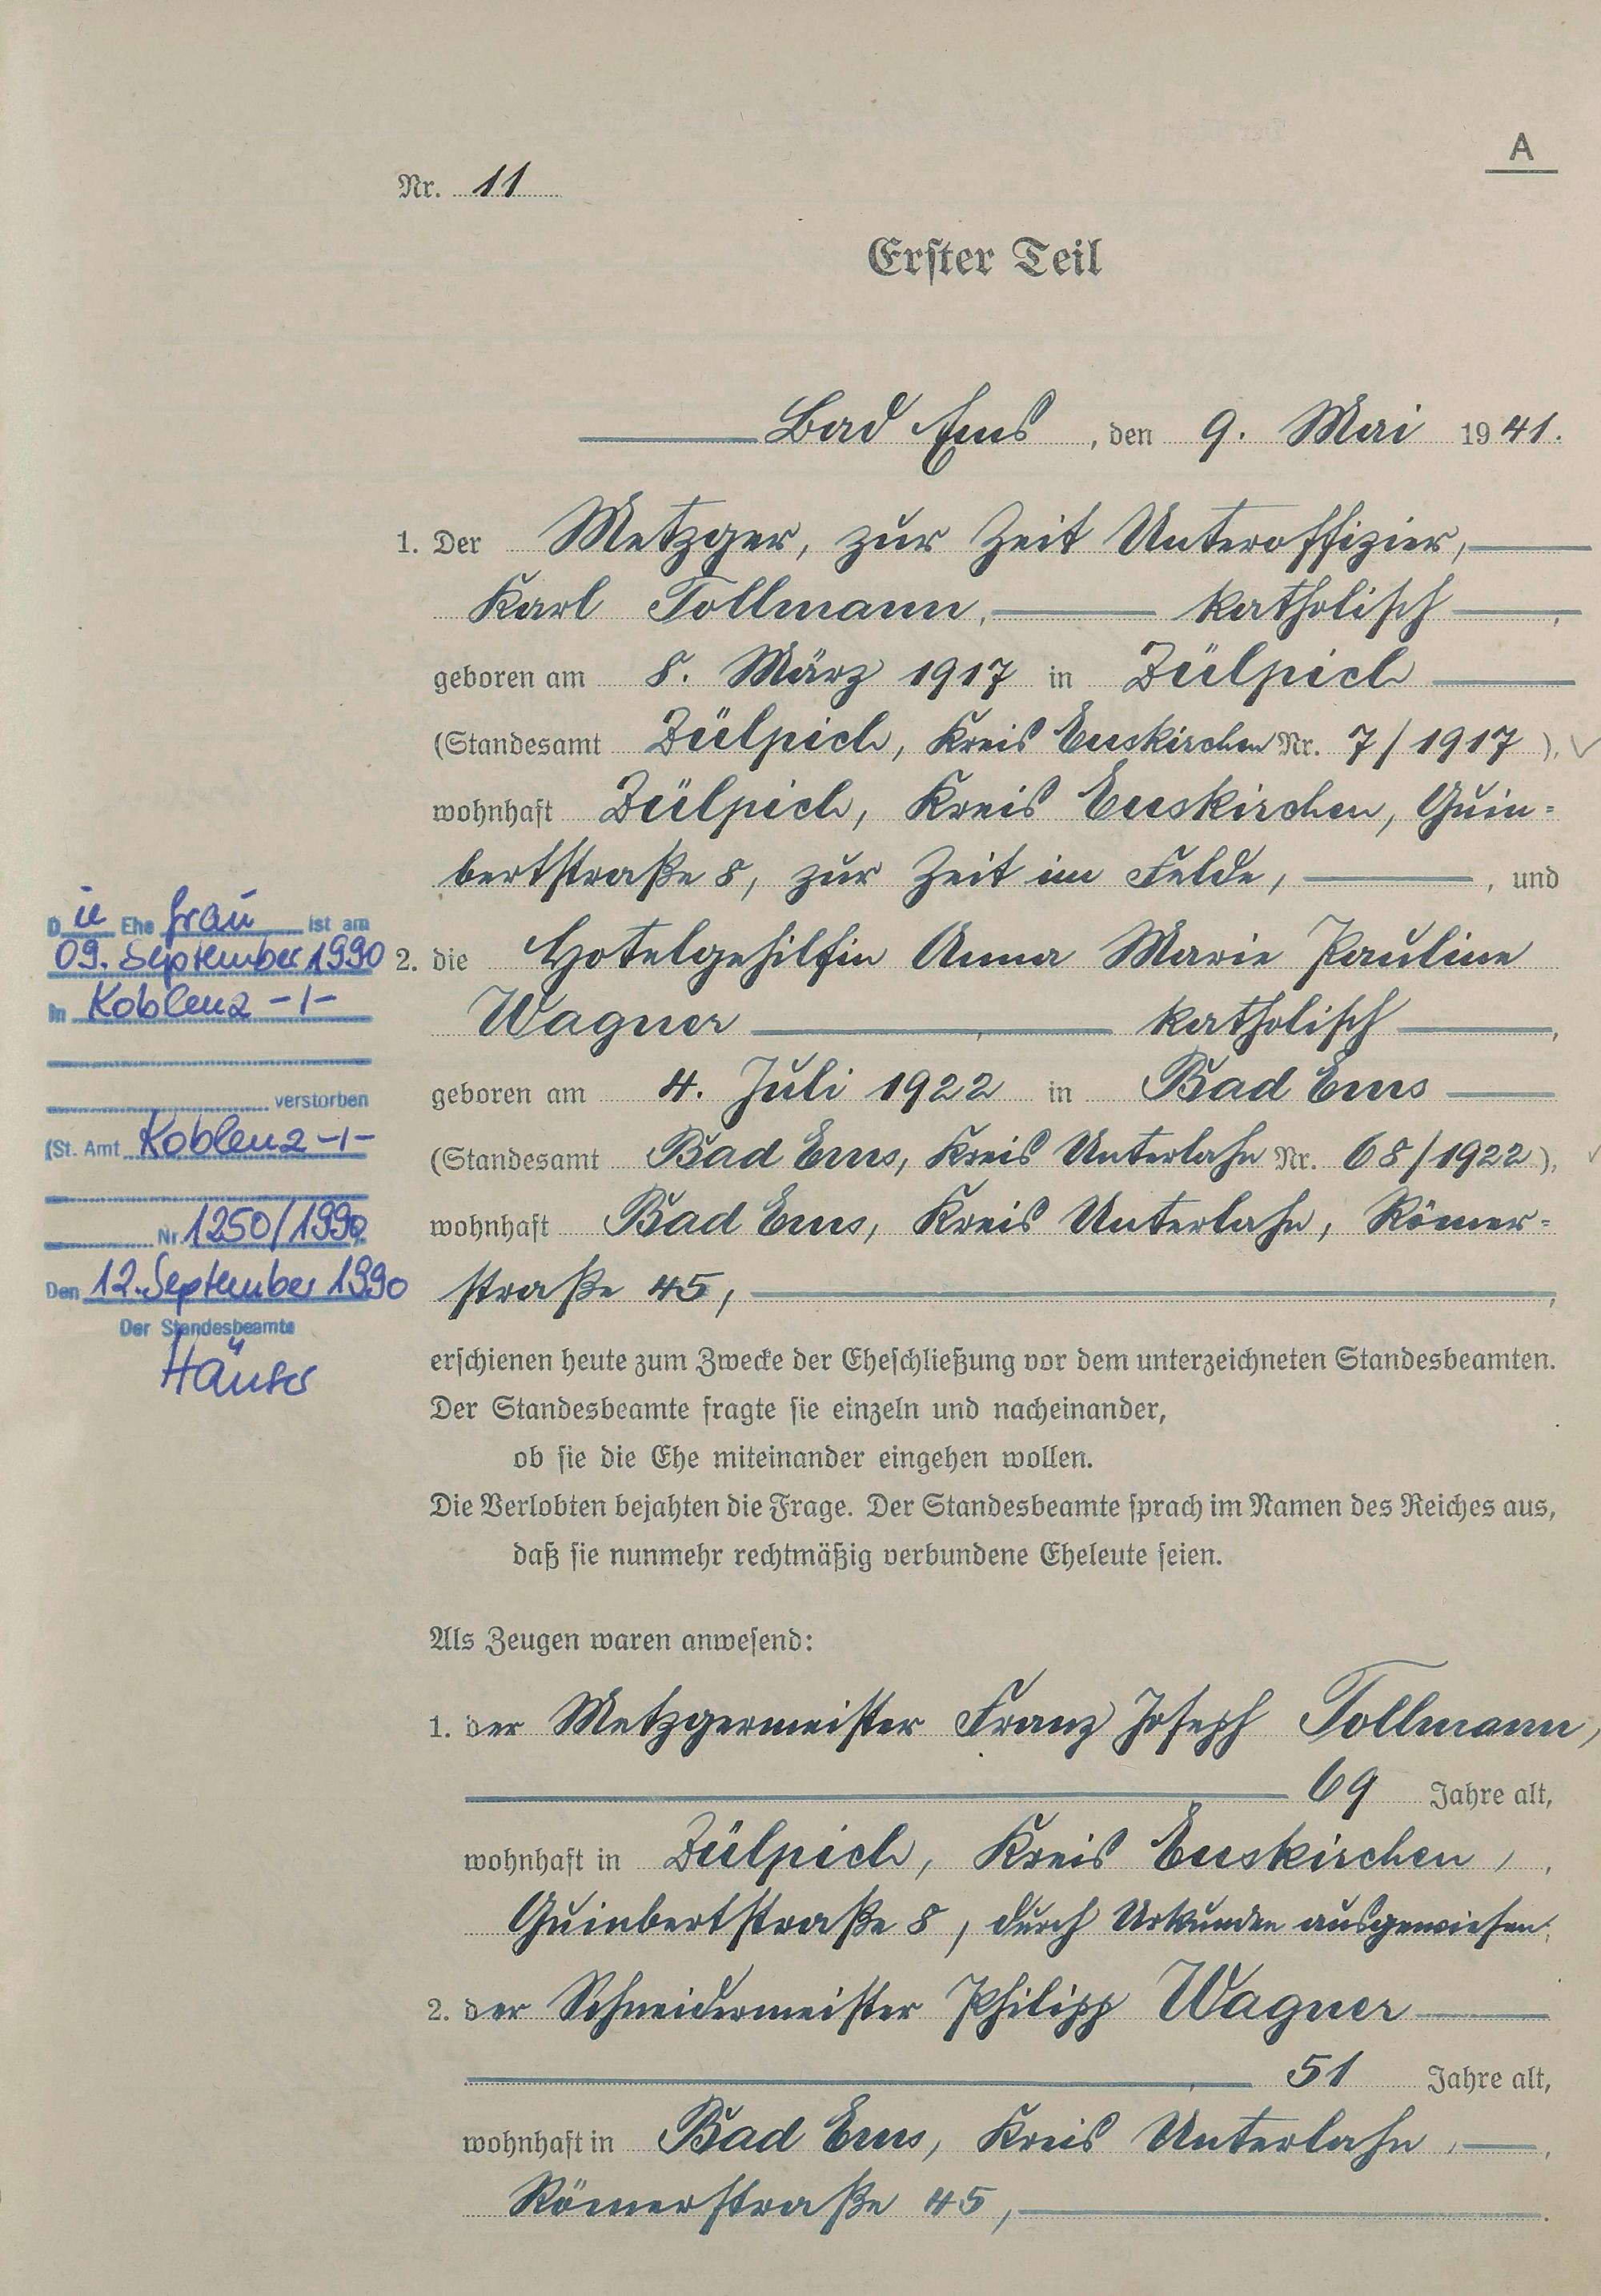 A
Nr. 11
Erster Teil
Bad Ems, den 9. Mai 1941.
1. Der Metzger, zur Zeit Unteroffizier,
Karl Tollmann, katholisch,
geboren am 8. März 1917 in Zülpich
(Standesamt Zülpich, Kreis Euskirchen Nr. 7/1917),
wohnhaft Zülpich, Kreis Euskirchen, Guin-
bertstraße 8, zur Zeit im Felde, , und
2. die Hotelgehilfin Anna Marie Pauline
Wagner, katholisch,
geboren am 4. Juli 1922 in Bad Ems
(Standesamt Bad Ems, Kreis Unterlahn Nr. 68/1922),
wohnhaft Bad Ems, Kreis Unterlahn, Römer-
straße 45,
erschienen heute zum Zwecke der Eheschließung vor dem unterzeichneten Standesbeamten.
Der Standesbeamte fragte sie einzeln und nacheinander,
ob sie die Ehe miteinander eingehen wollen.
Die Verlobten bejahten die Frage. Der Standesbeamte sprach im Namen des Reiches aus,
daß sie nunmehr rechtmäßig verbundene Eheleute seien.
Als Zeugen waren anwesend:
1. der Metzgermeister Franz Joseph Tollmann,
69 Jahre alt,
wohnhaft in Zülpich, Kreis Euskirchen,
Guinbertstraße 8, durch Urkunden ausgewiesen,
2. der Schneidermeister Philipp Wagner
51 Jahre alt,
wohnhaft in Bad Ems, Kreis Unterlahn,
Römerstraße 45,
Die Ehefrau ist am
09. September 1990
in Koblenz -1-
verstorben
(St. Amt Koblenz -1-
Nr. 1250/1990
Den 12. September 1990
Der Standesbeamte
Häuser